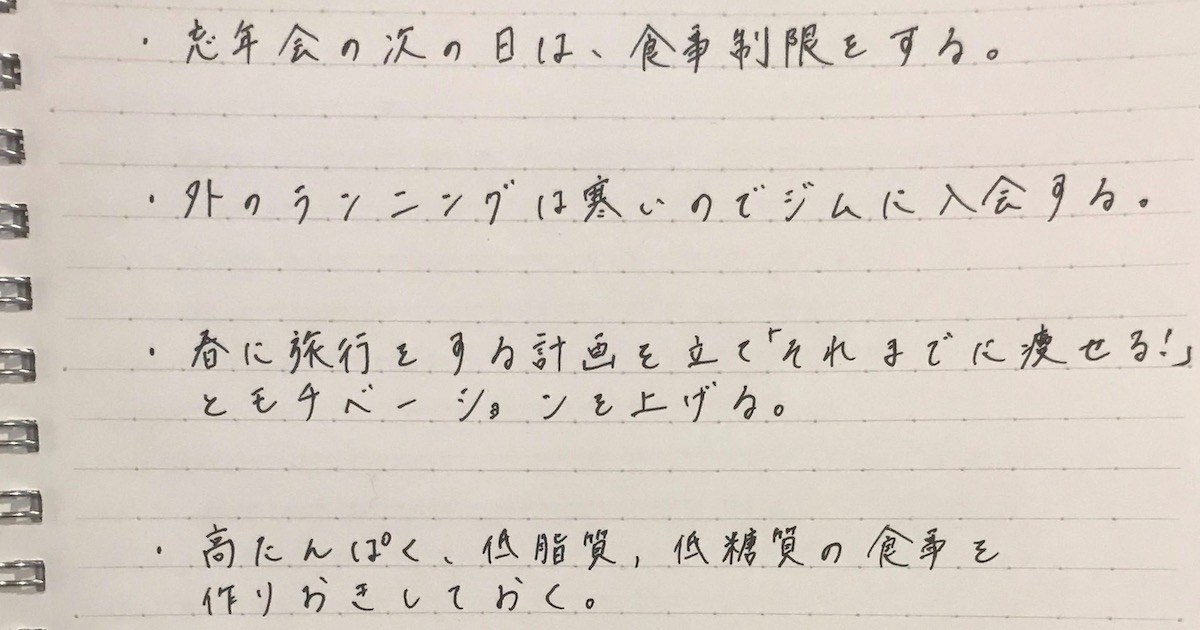 ・忘年会の次の日は、食事制限をする。
・外のランニングは寒いのでジムに入会する。
・春に旅行をする計画を立て「それまでに痩せる!」
とモチベーションを上げる。
・高たんぱく、低脂質,低糖質の食事を
作りおきしておく。